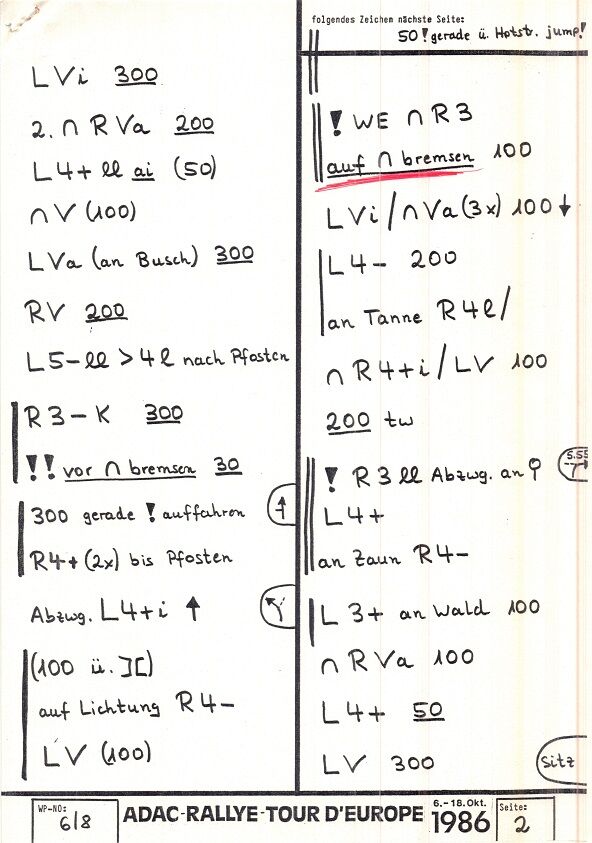 LVi 300
2. ∩ R Va 200
L4+ ll ai (50)
∩V (100)
LVa (an Busch) 300
RV 200
L5-ll > 4l nach Pfosten
R3-K 300
!! vor ∩ bremsen 30
300 gerade ! auffahren
R4+ (2x) bis Pfosten
Abzwg. L4+i ↑
(100 ü. ][)
auf Lichtung R4-
LV (100)
folgendes Zeichen nächste Seite:
50! gerade ü. Hptstr. jump!
! WE ∩ R3
auf ∩ bremsen 100
LVi/∩Va (3x) 100 ↓
L4- 200
an Tanne R4l/
∩ R4+i/LV 100
200 tw
! R3 ll Abzwg. an
5.55
L4+
an Zaun R4-
L3+ an Wald 100
∩ RVa 100
L4+ 50
LV 300
Sitz
WP-NO:
6/8
ADAC-RALLYE-TOUR D'EUROPE
6.-18.Okt.
1986
Seite:
2